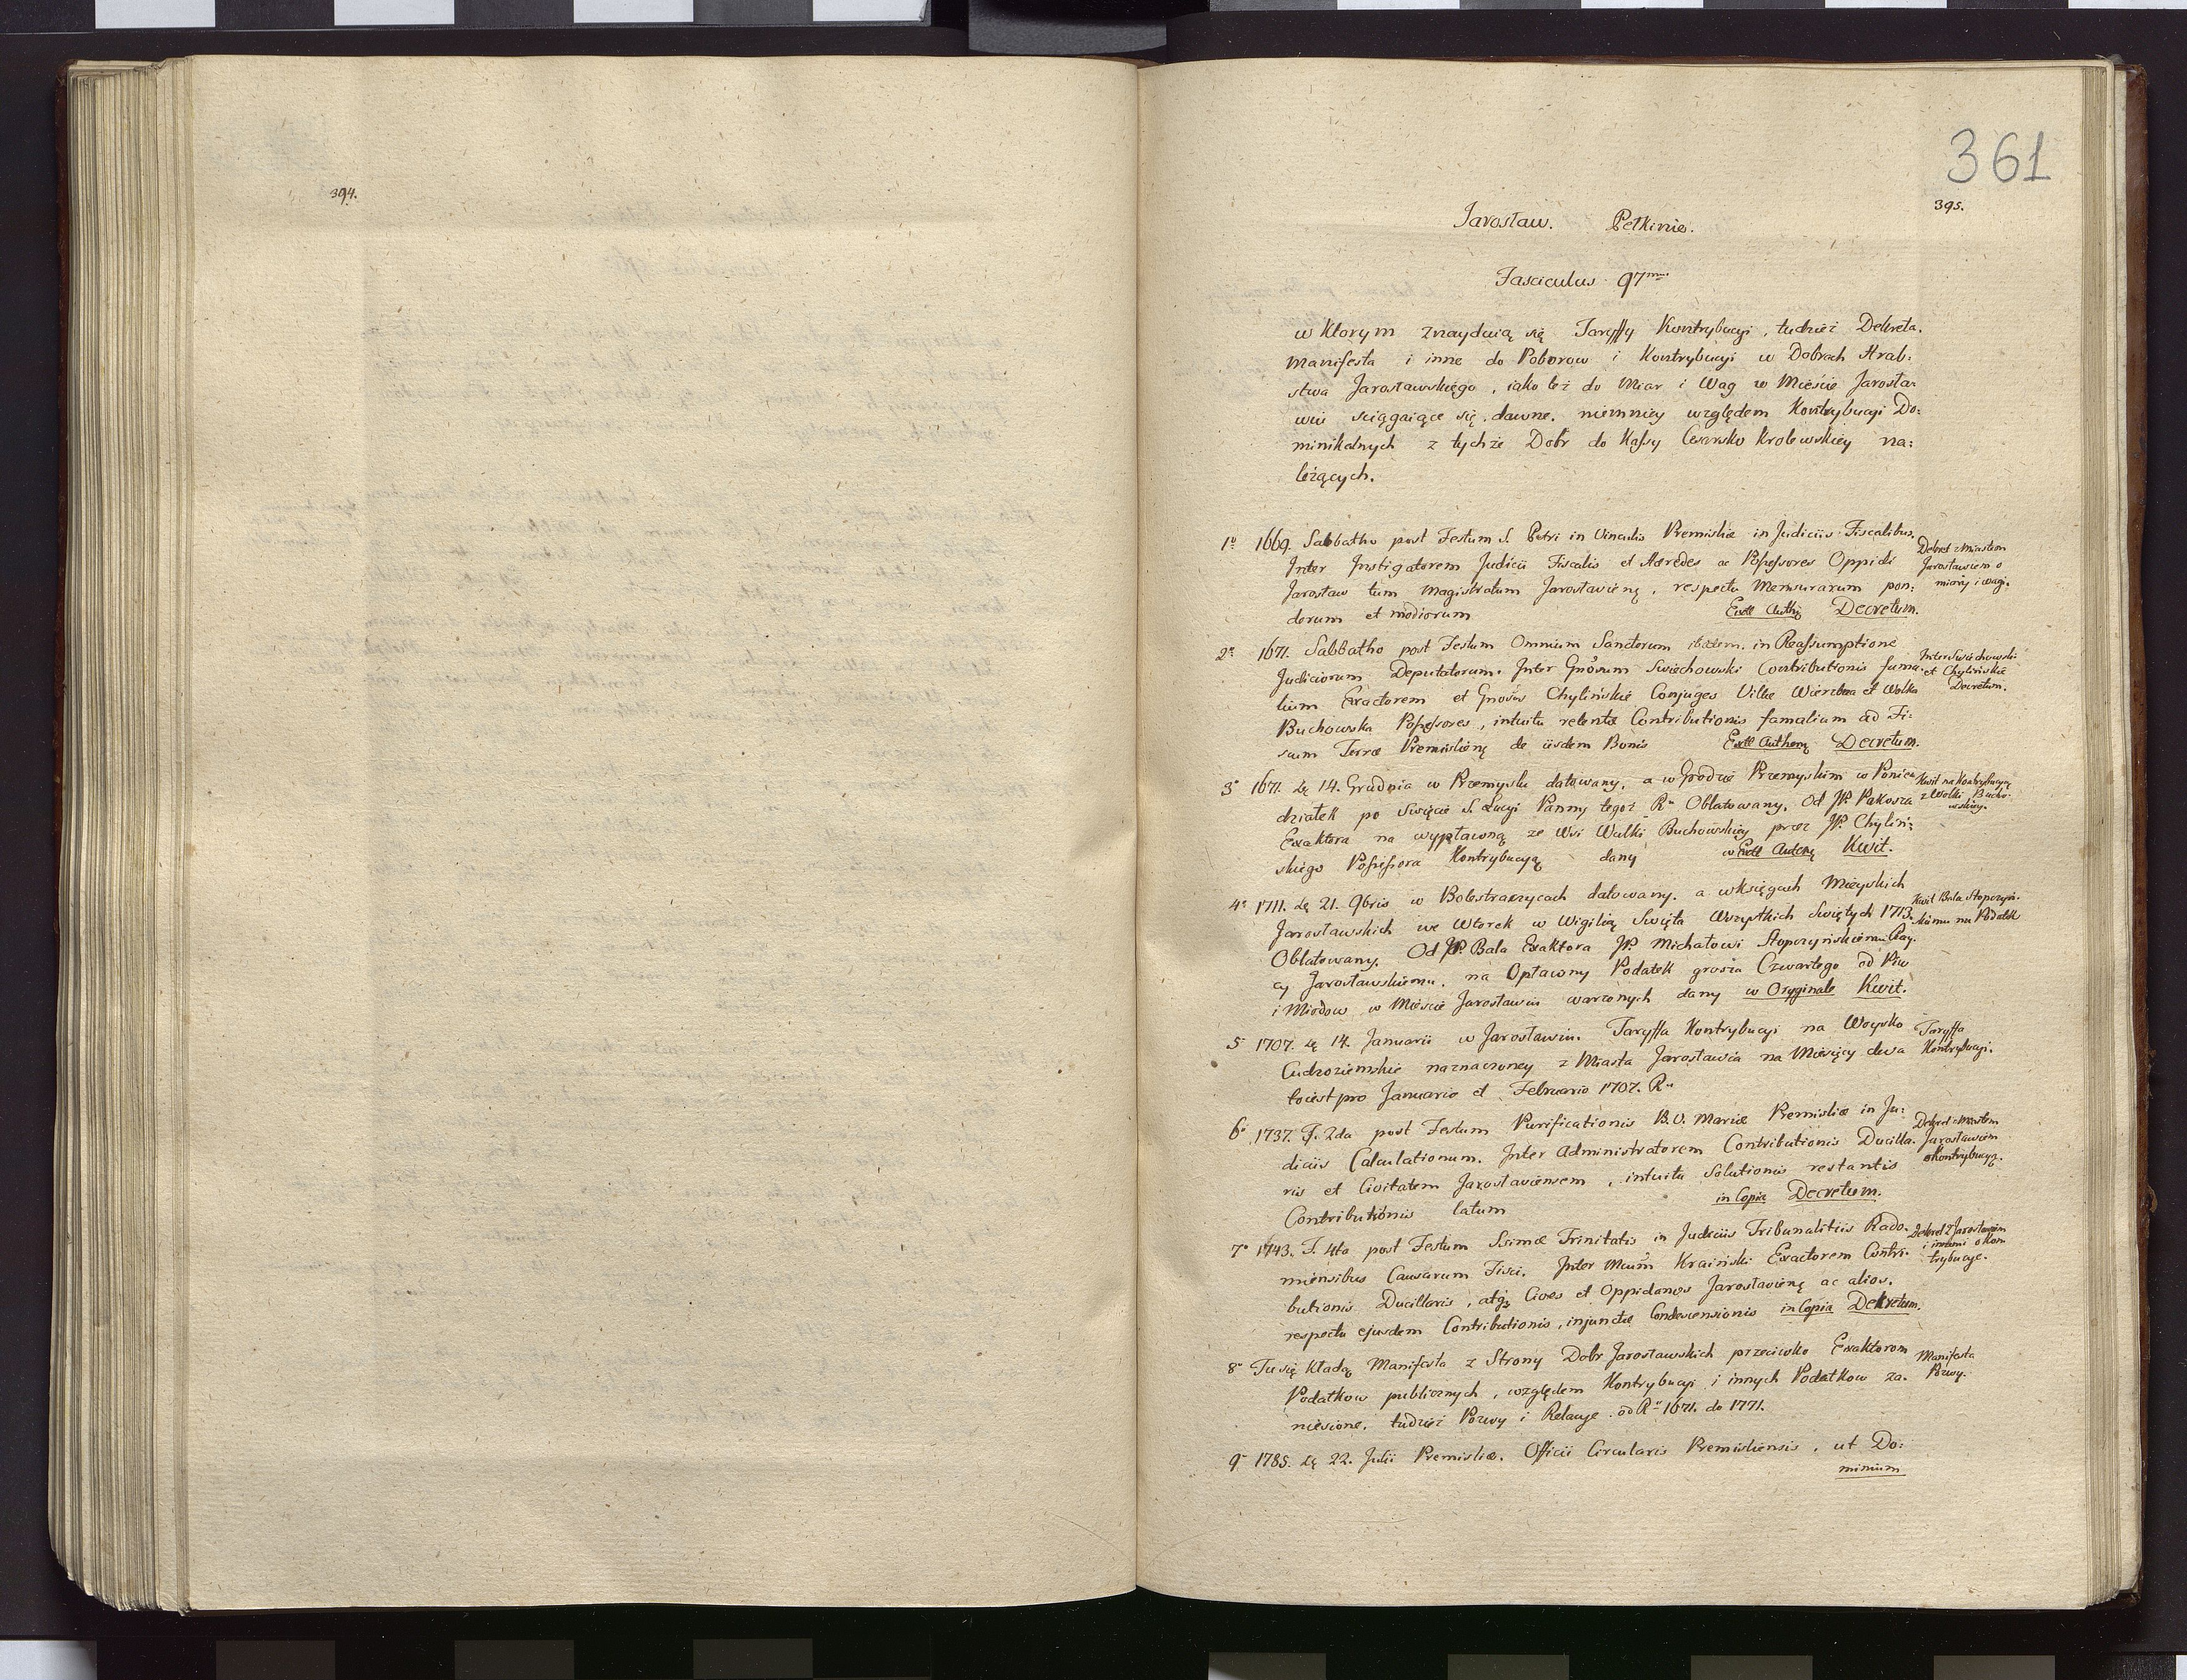 394.
361
395.
Jarosław. Pełkinie.
Fasciculus 97mus
w ktorym znayduią się Taryffy Kontrybucyi, tudzież Dekreta.
Manifesta i inne do Poborow i Kontrybucyi w Dobrach Hrab:
stwa Jarosławskiego, iako też do Miar i Wag w Mieście Jarosła:
wiu sciągaiące się, dawne. niemniey względem Kontrybucyi Do:
minikalnych z tychże Dobr do Kassy Cesarsko Krolewskiey na:
leżących.
1º 1669. Sabbatho post Festum S. Petri in Vinculis Premisliæ in Judiciis Fiscalibus.
Inter Instigatorem Judicii Fiscalis et Hæredes ac Possessores Oppidi
Jarosław tum Magistratum Jarosławienę, respectu Mensurarum pon:
derum et modiorum Extt Authę Decretum.
Dekret z Miastem
Jarosławiem o
miary i wagi.
2º 1671. Sabbatho post Festum Omnium Sanctorum ibidem. in Reassumptione
Judiciorum Deputatorum. Inter Gnosum Swiechowski Contributionis fuma:
lium Exactorem et Gnosos Chylińskie Conjuges Villæ Wierzbna et Wolka
Buchowska Possessores, intuitu retentæ Contributionis famalium ad Fi:
scum Terræ Premislienę de iisdem Bonis Extt Authenę Decretum.
Inter Swiechowski
et Chylińskie
Decretum.
3º 1671. dę 14. Grudnia w Przemyslu datowany, a w Grodzie Przemyskim w Ponie:
działek po Swięcie S. Łucyi Panny tegoż Ru Oblatowany. Od JP. Pakosza
Exaktora na wypłaconą ze Wsi Wulki Buchowskiey przez JP. Chyliń:
skiego Possessora Kontrybucyą dany w Extt Autenę Kwit.
Kwit na Kontrybucyą
z Wolki Bucho:
wskiey.
4º 1711. dę 21. 9bris w Bolestraszycach datowany. a w księgach Mieyskich
Jarosławskich we Wtorek w Wigilią Swięta Wszystkich Swiętych 1713.
Oblatowany. Od JP. Bala Exaktora JP. Michałowi Stopczyńskiemu Ray:
cy Jarosławskiemu, na Opłacony Podatek grosza Czwartego od Piw
i Miodow w Mieście Jarosławiu warzonych dany w Oryginale Kwit.
Kwit Bala Stopczyń:
skiemu na Podatek
5 1707. dę 14. Januarii w Jarosławiu. Taryffa Kontrybucyi na Woysko
Cudzoziemskie naznaczoney z Miasta Jarosławia na Miesięcy dwa
toiest pro Januario et Februario 1707. Ru
Taryffa
Kontrybucyi.
6º 1737. F. 2da post Festum Purificationis B. V. Mariæ Premisliæ in Ju:
diciis Calculationum. Inter Administratorem Contributionis Ducilla:
ris et Civitatem Jarosłaviensem, intuitu Solutionis restantis
Contributionis latum in Copia Decretum.
Dekret z Miastem
Jarosławiem
o Kontrybucyą.
7º 1743. F. 4ta post Festum Ssimæ Trinitatis in Judiciis Tribunalitiis Rado:
miensibus Causarum Fisci. Inter Mcum Kraiński Exactorem Contri:
butionis Ducillaris, atqz Cives et Oppidanos Jarosłavienę ac alios.
respectu ejusdem Contributionis, injunctæ Condescensionis in Copia Dekretum.
Dekret z Jarosławiem
i innemi o Kon:
trybucye.
8º Tu się kładą Manifesta z Strony Dobr Jarosławskich przeciwko Exaktorom
Podatkow publicznych, względem Kontrybucyi i innych Podatkow za:
niesione, tudzież Pozwy i Relacye od Ru 1671. do 1771.
Manifesta
Pozwy.
9º 1785. dę 22. Julii Premisliæ. Officii Circularis Premisliensis, ut Do:
minium